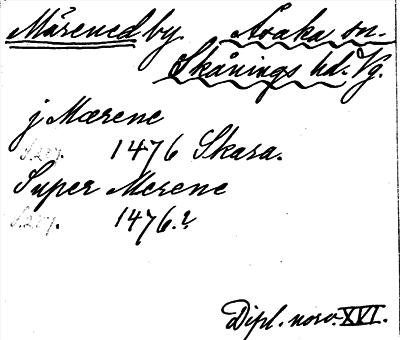 Märened by. Åsaka sn.
Skånings hd. Vg.
j Mærene
S.257. 1476 Skara.
Super Merene
S.257. 1476.2
Dipl. norv. XVI.